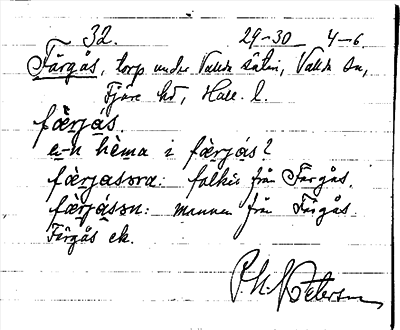 32. 29-30 4-6
Färgås, torp under Valda Säteri, Valda sn,
Fjäre hd, Hall. l.
fæ̀rjás.
e-n hèma i fæ̀rjás?
fæ̀rjasəra: folket från Färgås.
fæ̀rjásən: mannen från Färgås.
Färgås ek.
P. N. Peterson